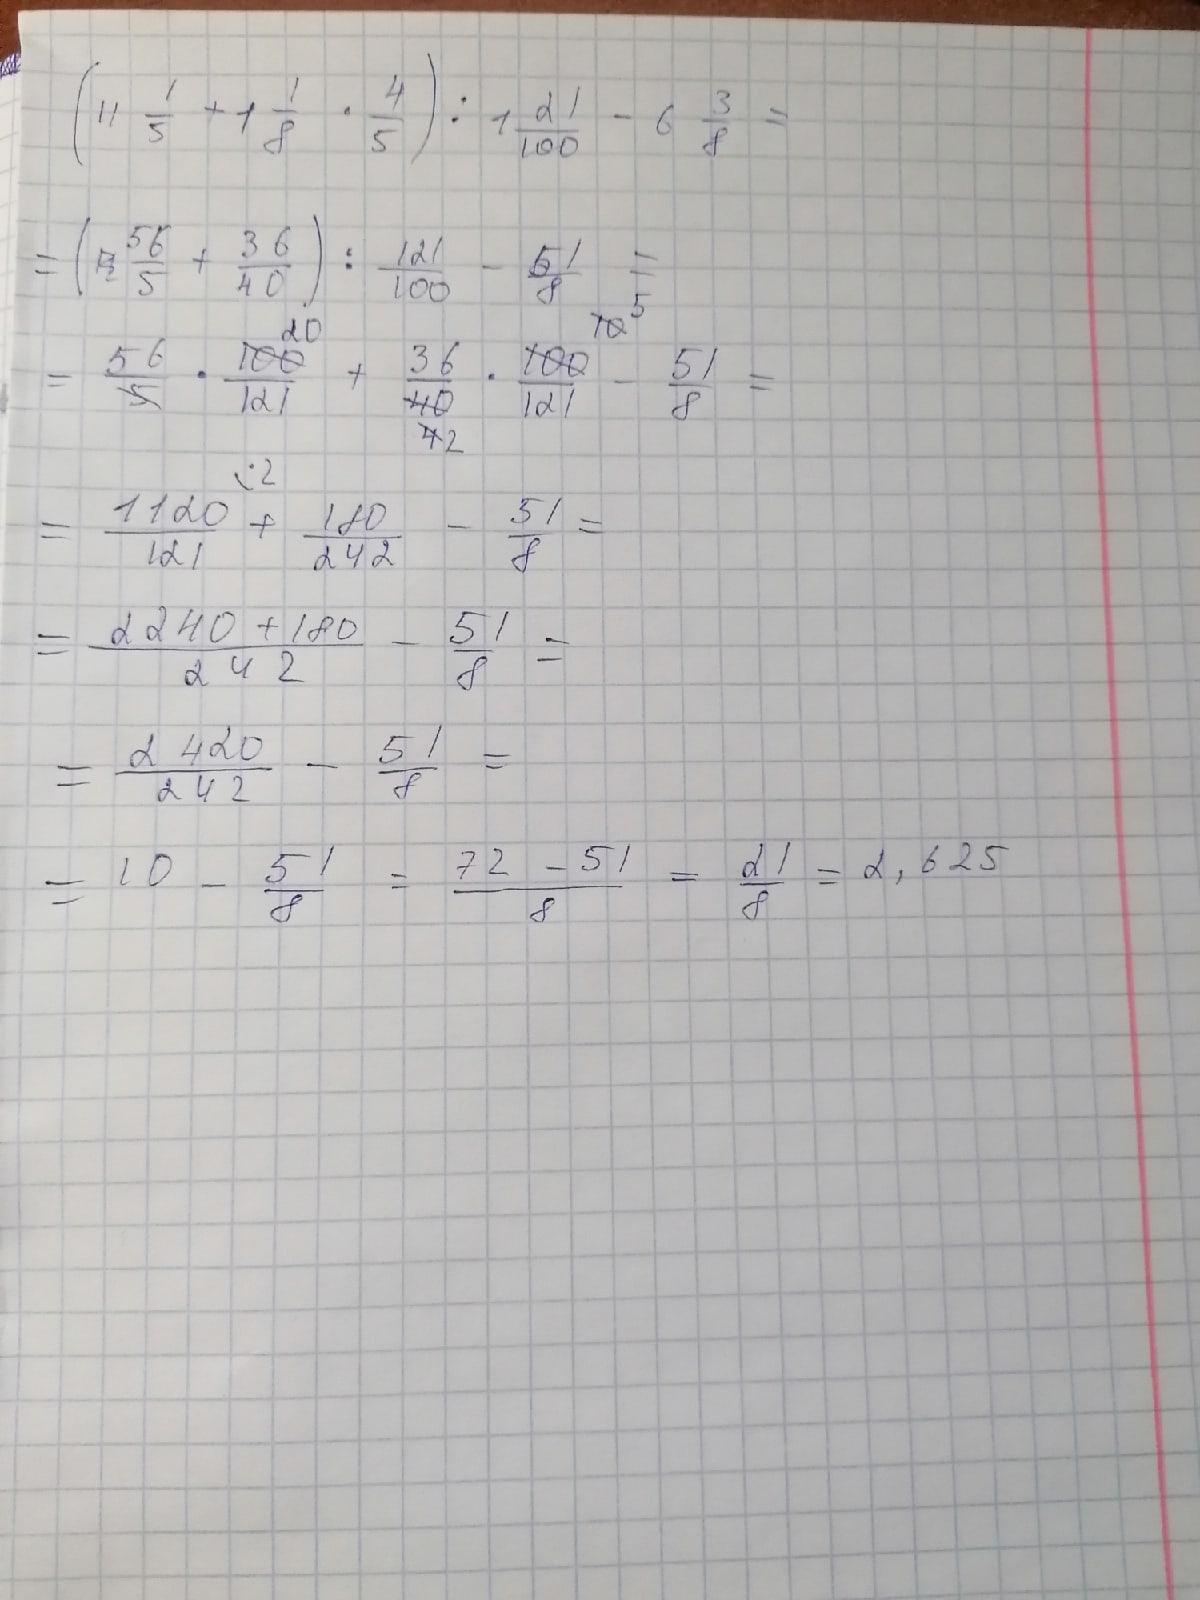 (11 1/5 + 1 1/8 · 4/5) : 1 21/100 - 6 3/8 =
= (56/5 + 36/40) : 121/100 - 51/8 =
20 10 5
= 56/5 · 100/121 + 36/40 · 100/121 - 51/8 =
4 2
·2
= 1120/121 + 180/242 - 51/8 =
= 2240 + 180/242 - 51/8 =
= 2420/242 - 51/8 =
= 10 - 51/8 = 72 - 51/8 = 21/8 = 2,625